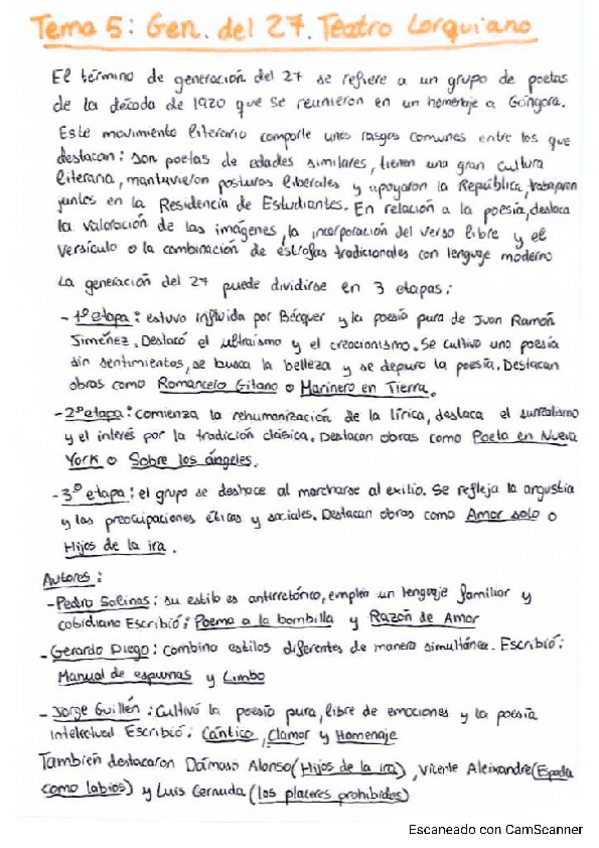 Tema 5: Gen. del 27. Teatro Lorquiano
El término de generación del 27 se refiere a un grupo de poetas
de la década de 1920 que se reunieron en un homenaje a Góngora.
Este movimiento literario comparte unos rasgos comunes entre los que
destacan: son poetas de edades similares, tienen una gran cultura
literaria, mantuvieron posturas liberales y apoyaron la República, trabajaron
juntos en la Residencia de Estudiantes. En relación a la poesía, destaca
la valoración de las imágenes, la incorporación del verso libre y el
versículo o la combinación de estrofas tradicionales con lenguaje moderno
La generación del 27 puede dividirse en 3 etapas:
- 1º etapa: estuvo influida por Bécquer y la poesía pura de Juan Ramón
Jiménez. Destacó el ultraísmo y el creacionismo. Se cultivo una poesía
sin sentimientos, se busca la belleza y se depura la poesía. Destacan
obras como Romancero Gitano o Marinero en Tierra.
- 2º etapa: comienza la rehumanización de la lírica, destaca el surrealismo
y el interés por la tradición clásica. Destacan obras como Poeta en Nueva
York o Sobre los ángeles.
- 3º etapa: el grupo se deshace al marcharse al exilio. Se refleja la angustia
y las preocupaciones éticas y sociales. Destacan obras como Amor solo o
Hijos de la ira.
Autores:
- Pedro Salinas: su estilo es antirretórico, emplea un lenguaje familiar y
cotidiano Escribió: Poema a la bombilla y Razón de Amor
- Gerardo Diego: combina estilos diferentes de manera simultánea. Escribió:
Manual de espumas y Limbo
- Jorge Guillén: Cultivó la poesía pura, libre de emociones y la poesía
intelectual Escribió: Cántico, Clamor y Homenaje
También destacaron Dámaso Alonso (Hijos de la ira), Vicente Aleixandre (Espada
como labios) y Luis Cernuda (los placeres prohibidos)
Escaneado con CamScanner